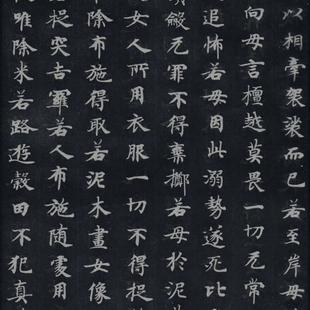 以相牽袈裟而已若至岸母
向母言檀越莫畏一切无常
追怖若母因此溺勢遂死比
斂无罪不得棄擲若母於泥
女人所用衣服一切不得捉
除布施得取若泥木畫女像
捉突吉羅若人布施随處用
唯除米若路遊穀田不犯真